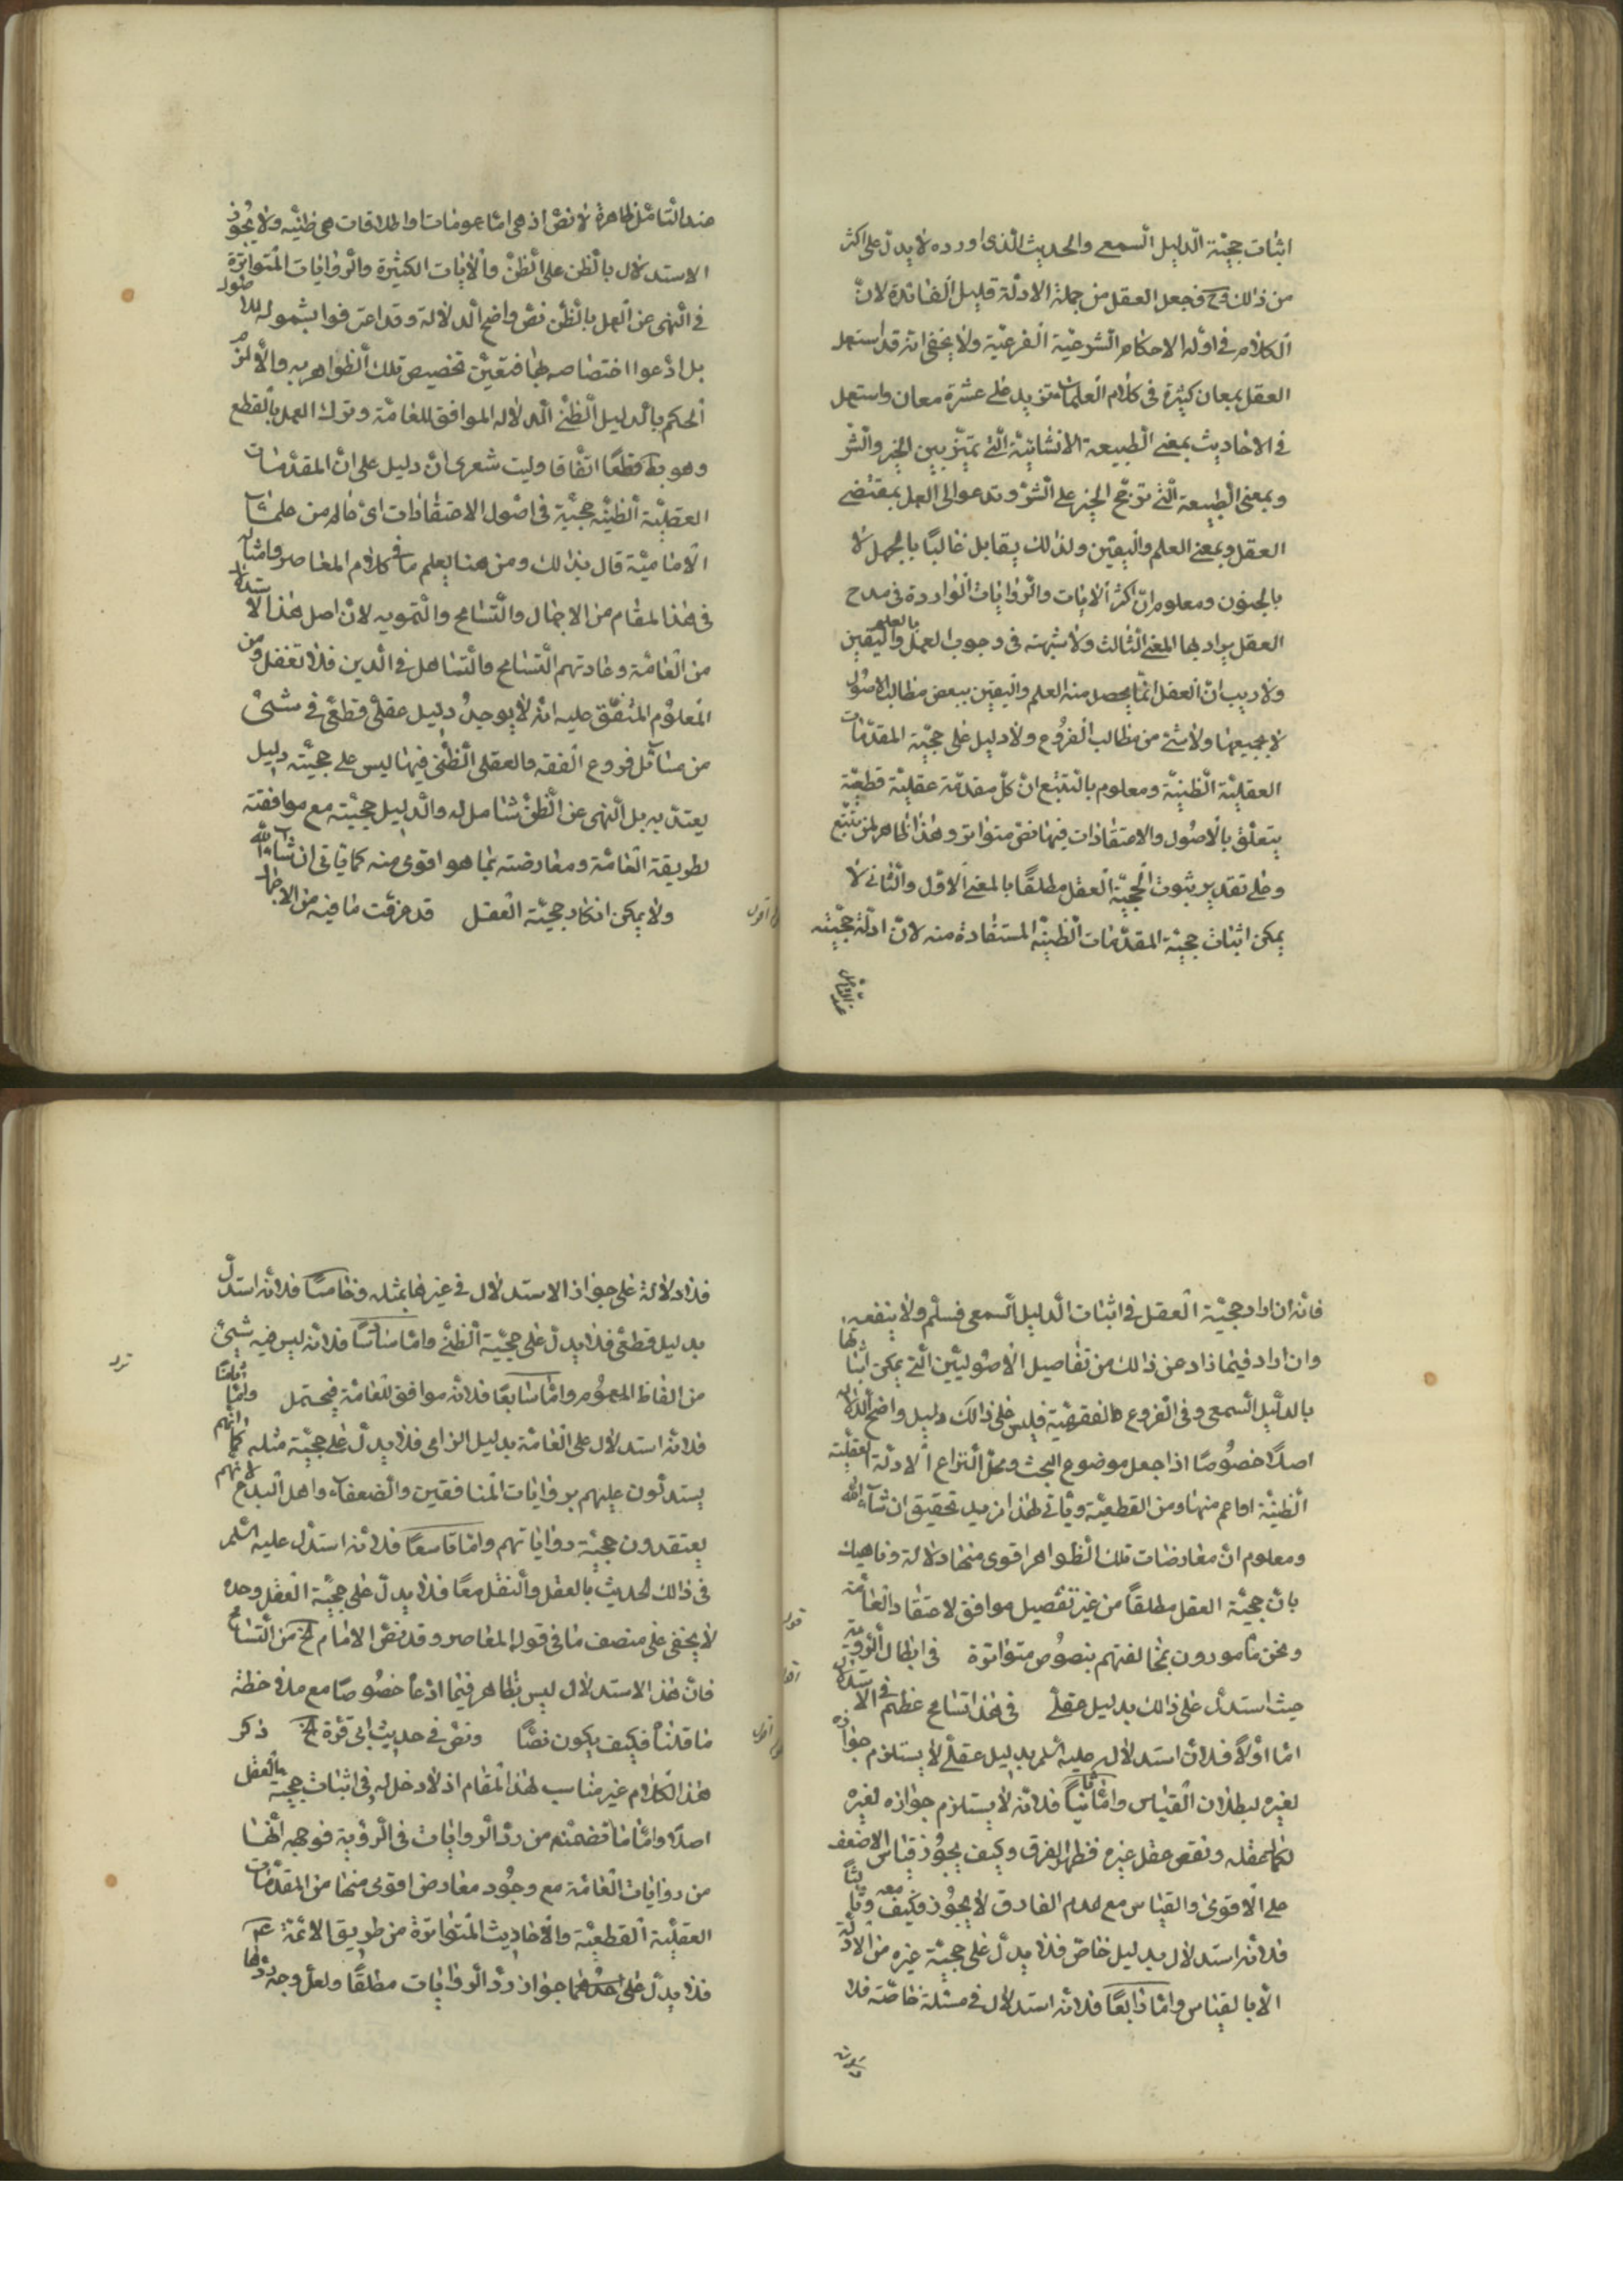 اثبات حجيّة الدّليل السمعى والحديث الّذى اورده لا يدلّ على اكثر
من ذلك وح فجعل العقل من جملة الادلّة قليل الفائدة لانّ
الكلام فى ادلّة الاحكام الشّرعيّة الفرعيّة ولا يخفى انّه قد استعمل
العقل بمعان كثيرة فى كلام العلماء تزيد على عشرة معان واستعمل
فى الاحاديث بمعنى الطّبيعة الانسانيّة الّتى تميّز بين الخير والشّر
وبمعنى الطّبيعة الّتى ترجّح الخير على الشّرّ وتدعو الى العمل بمقتضى
العقل وبمعنى العلم واليقين ولذلك يقابل غالبًا بالجهل لا
بالجنون ومعلوم انّ اكثر الايات والرّوايات الواردة فى مدح
العقل يراد بها المعنى الثّالث ولا شبهة فى وجوب العمل بالعلم واليقين
ولا ريب انّ العقل انّما يحصل منه العلم واليقين ببعض مطالب الاصول
لا بجميعها ولا شئ من مطالب الفروع ولا دليل على حجيّة المقدّمات
العقليّة الظّنيّة ومعلوم بالتتبّع انّ كلّ مقدّمة عقليّة قطعيّة
يتعلّق بالاصول والاعتقادات فيها نصّ متواتر وهذا ظاهر لمن تتبّع
وعلى تقدير ثبوت الحجيّة العقل مطلقًا بالمعنى الاوّل والثّانى لا
يمكن اثبات حجيّة المقدّمات الظّنيّة المستفادة منه لانّ ادلّة حجّيته
عند التامل
عند التّامّل ظاهرة لا نصّ اذ هى امّا عمومات او اطلاقات هى ظنيّه ولا يجوز
الاستدلال بالظّن على الظّنّ والايات الكثيرة والرّوايات المتواترة
فى النّهى عن العمل بالظّنّ نصّ واضح الدّلالة وقد اعترفوا بشموله للاصول
بل ادّعوا اختصاصه بها فتعيّن تخصيص تلك الظّواهر به والّا لزم
الحكم بالدليل الظّنّى الدّلالة الموافق للعامّة وترك العمل بالقطع
وهو بط قطعًا اتّفاقا وليت شعرى اىّ دليل على انّ المقدّمات
العقليّة الظّنيّة حجيّة فى اصول الاعتقادات اىّ عالم من علماء
الاماميّة قال بذلك ومن هنا يعلم ما فى كلام المعاصر وامثاله
فى هذا المقام من الاجمال والتّسامح والتّمويه لانّ اصل هذا الاستدلال
من العامّة وعادتهم التّسامح والتّساهل فى الدّين فلا تغفل ومن
المعلوم المتّفق عليه انّه لا يوجد دليل عقلىّ قطعىّ فى شئ
من مسائل فروع الفقه والعقلى الظّنّى فيها ليس على حجيّته دليل
يعتدّ به بل النّهى عن الظّنّ شامل له والدّليل حجيّته مع موافقته
لطريقة العامّة ومعارضته بما هو اقوى منه كما ياتى ان شاء الله
ولا يمكن انكار حجيّة العقل قد عرفت ما فيه من الاجمال
فانّه ان اراد حجيّة العقل فى اثبات الدّليل السمعى فسلّم ولا ينفعه
وان اراد فيما زاد عن ذلك من تفاصيل الاصوليّين الّتى يمكن اثباتها
بالدليل السّمعى وفى الفروع الفقهيّة فليس على ذلك دليل واضح الدّلالة
اصلًا خصوصًا اذا جعل موضوع البحث ومحلّ النّزاع الادلّة العقليّة
الظّنيّة او اعم منها ومن القطعيّة وياتى لهذا مزيد تحقيق ان شاء الله
ومعلوم انّ معارضات تلك الظّواهر اقوى منها دلالة وناهيك
بانّ حجيّة العقل مطلقًا من غير تفصيل موافق لاعتقاد العامّة
ونحن مامورون بمخالفتهم بنصوص متواترة فى ابطال الرّؤية
حيث استدلّ على ذلك بدليل عقلىّ فى هذا تسامح عظيم فى الاستدلال
امّا اوّلًا فلانّ استدلاله عليه السلم بدليل عقلىّ لا يستلزم جوازه
لغيره لبطلان القياس وامّا ثانيًا فلانّه لا يستلزم جوازه لغيره
لكمال عقله ونقص عقل غيره فظهر الفرق وكيف يجوز قياس الاضعف
على الاقوى والقياس مع عدم الفارق لا يجوز فكيف معه وثالثًا
فلانّه استدلال بدليل خاصّ فلا يدلّ على حجيّة غيره من الادلّة
الّا بالقياس وامّا رابعًا فلانّه استدلال فى مسئلة خاصّة فلا
فلا دلالة على جواز الاستدلال فى غيرها بمثله وخامسًا فلانّه استدلّ
بدليل قطعىّ فلا يدلّ على حجيّة الظّنّى وامّا سادسًا فلانّه ليس فيه شئ
من الفاظ العموم وامّا سابعًا فلانّه موافق للعامّة فيحتمل وامّا ثامنًا
فلانّه استدلال على العامّة بدليل الزامى فلا يدلّ على حجيّة مثله كما انّهم
يستدلّون عليهم بروايات المنافقين والضعفاء واهل البدع لانّهم
يعتقدون حجيّة رواياتهم وامّا تاسعًا فلانّه استدلّ عليه السلم
فى ذلك الحديث بالعقل والنقل معًا فلا يدلّ على حجيّة العقل وحده
لا يخفى على منصف ما فى قول المعاصر وقد نصّ الامام الخ من التّسامح
فانّ هذا الاستدلال ليس بظاهر فيما ادّعاه خصوصًا مع ملاحظة
ما قلناه فكيف يكون نصًّا ونصّ فى حديث ابى قرّة الخ ذكر
هذا الكلام غير مناسب لهذا المقام اذ لا دخل له فى اثبات حجيّة العقل
اصلًا وامّا ما تضمّنه من ردّ الرّوايات فى الرّؤية فوجهه انّها
من روايات العامّة مع وجود معارض اقوى منها من المقدّمات
العقليّة القطعيّة والاحاديث المتواترة من طريق الائمّة عم
فلا يدلّ على جواز ردّ الرّوايات مطلقًا ولعلّ وجه ردّها